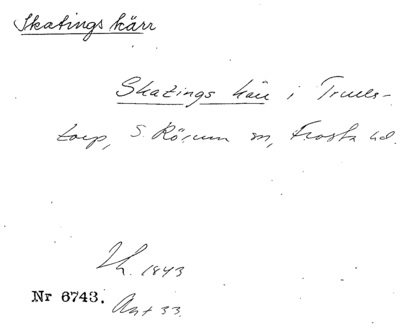 Skatings kärr
Skatings kärr i Truels-
torp, S. Rörum sn, Frosta hd.
Lh. 1843
Nr 6743. Akt 33.